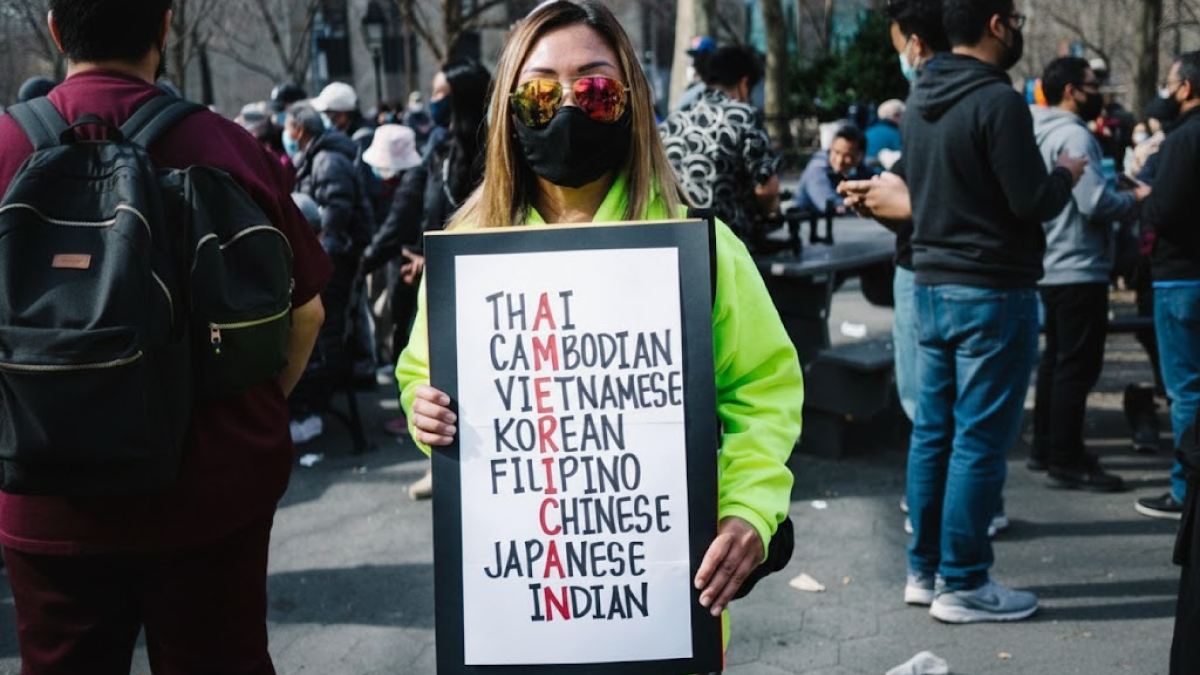 THAI
CAMBODIAN
VIETNAMESE
KOREAN
FILIPINO
CHINESE
JAPANESE
INDIAN